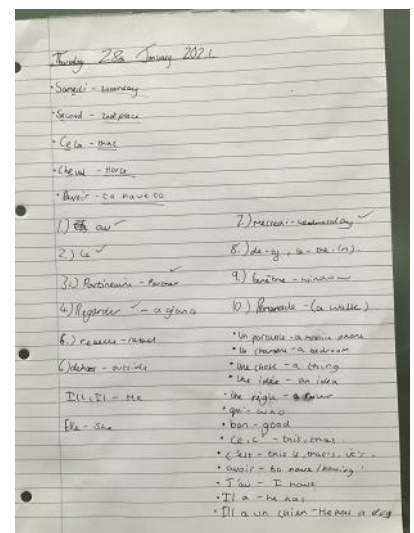 Thursday 28th January 2021
• Samedi - saturday
• Second - 2nd place
• Cela - that
• Cheval - Horse
• Devoir - to have to
1.) au ✓
2.) Le ✓
3.) Partenaire - Partner ✓
4.) Regarder ✓ - a glance
5.) rebelle - rebel
6.) dehors - outside
Il - He
Elle - She
7.) Mecredi - wednesday ✓
8.) de - of, le - the (m).
9.) fenêtre - window
10.) Promenade - (a walk)
• Un portable - a mobile phone
• Un chambre - a bedroom
• Une chose - a thing
• Une idée - an idea
• Une règle -
• qui - who
• bon - good
• Ce, c' - this, that.
• C'est - this is, that's, it's.
• avoir - to have / having
• J'ai - I have
• Il a - he has
• Ill a un chien - He has a dog